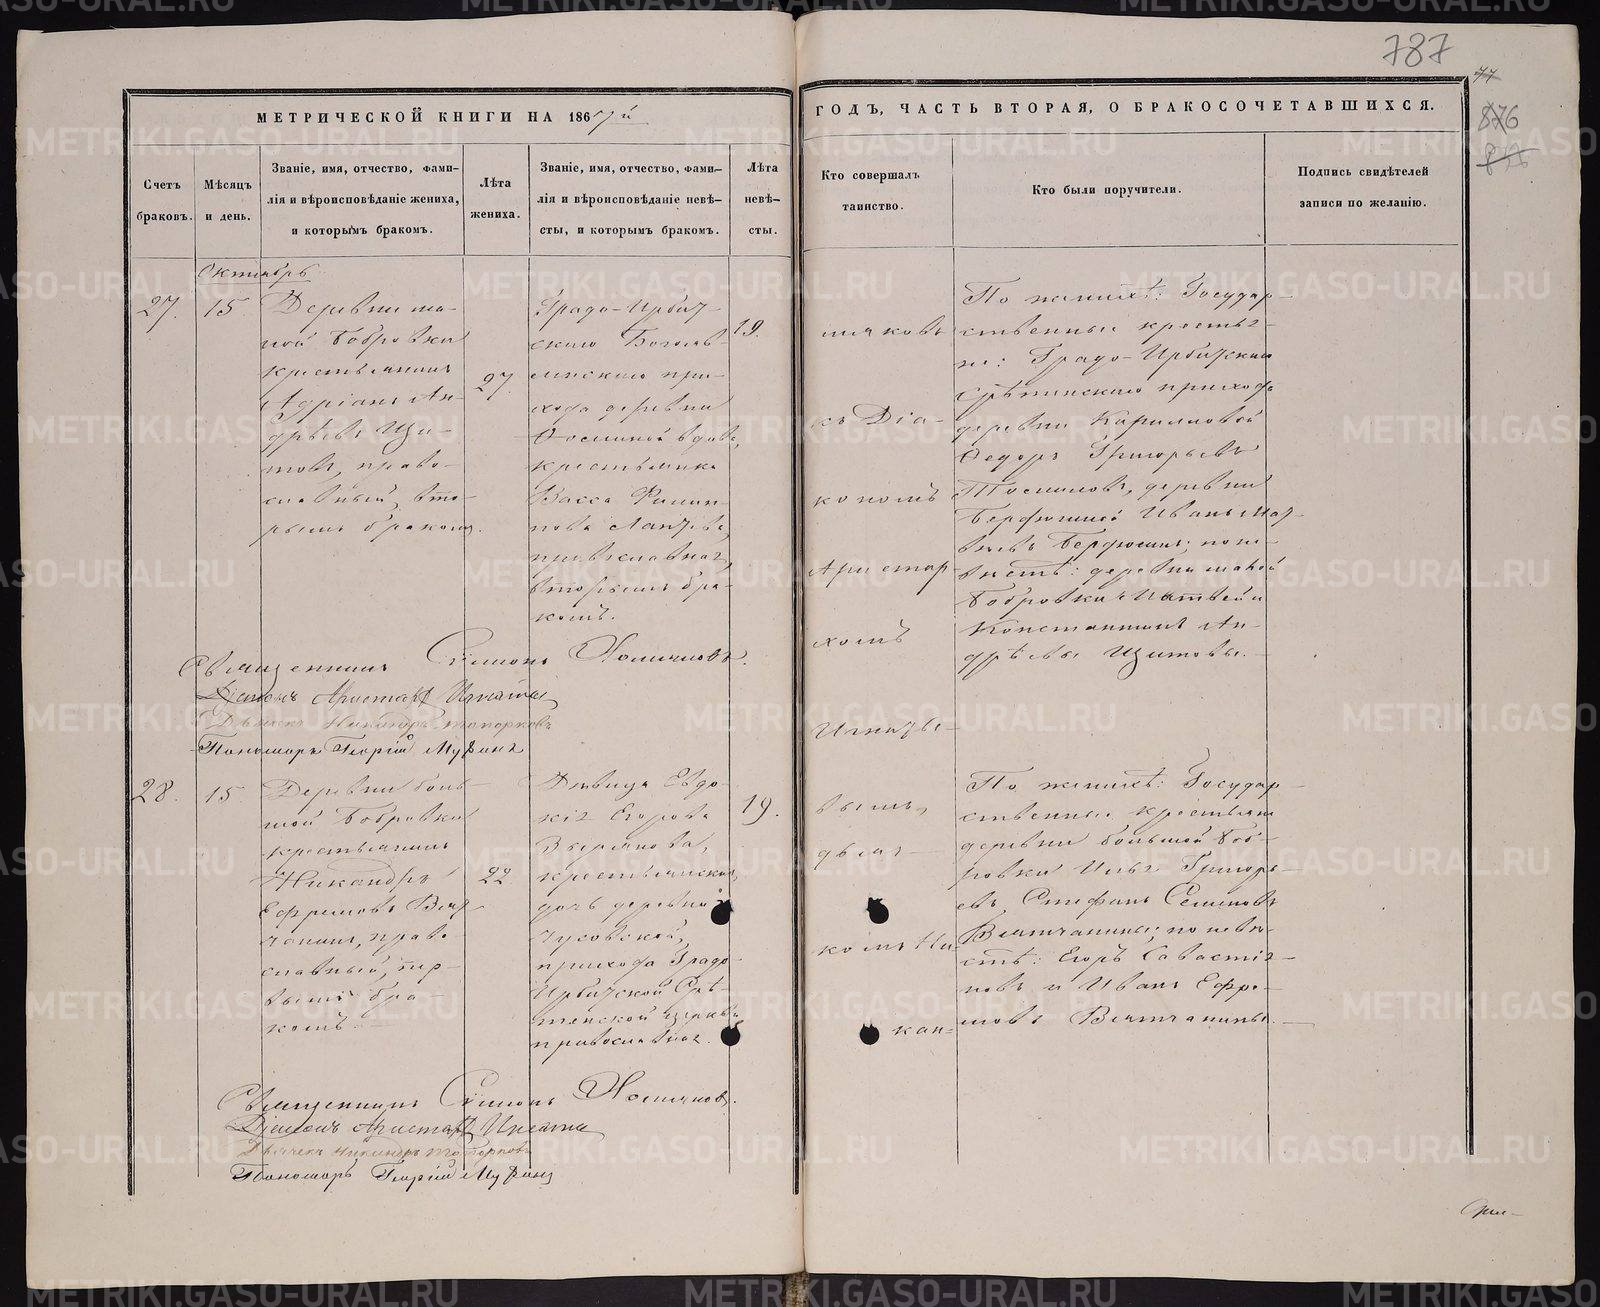 787
77
876
МЕТРИЧЕСКОЙ КНИГИ НА 186
ГОДЪ, ЧАСТЬ ВТОРАЯ, О БРАКОСОЧЕТАВШИХСЯ.
Счетъ
браковъ.
Мѣсяцъ
и день.
Званіе, имя, отчество, фами-
лія и вѣроисповѣданіе жениха,
и которымъ бракомъ.
Лѣта
жениха.
Званіе, имя, отчество, фами-
лія и вѣроисповѣданіе невѣ-
сты, и которымъ бракомъ.
Лѣта
невѣ-
сты.
Кто совершалъ
таинство.
Кто были поручители.
Подпись свидѣтелей
записи по желанію.
Октябрь
27.
15.
Деревни ма-
лой Бобровки
крестьянинъ
Адріанъ Ан-
дрѣевъ Щи-
товъ, право-
славный, вто-
рымъ бракомъ.
27.
Градо-Ирбит-
скаго Богояв-
ленскаго при-
хода деревни
вдова,
крестьянка
Васса Филип-
пова
православная
вторымъ бра-
комъ.
19.
мяковъ
съ Діа-
кономъ
Аристар-
хомъ
Игнать-
вымъ,
дьяч-
комъ Ни-
кан-
По женихѣ: Государ-
ственные крестья-
не: Градо-Ирбитскаго
Срѣтинскаго прихода
деревни
Ѳедоръ Григорьевъ
деревни
Иванъ Мат-
вѣевъ по не-
вѣстѣ: деревни малой
Бобровки Матвей и
Константинъ Ан-
дрѣевы Щитовы.
Священникъ Симонъ Хомяковъ.
Діаконъ Аристархъ Игнатьевъ
Дьячекъ Никандръ Топорковъ
Пономарь Георгій Мухинъ
28.
15.
Деревни боль-
шой Бобровки
крестьянинъ
Никандръ
Ефремовъ Вят-
чанинъ, право-
славный, пер-
вымъ бра-
комъ.
22
Дѣвица Евдо-
кія Егорова
крестьянская
дочь деревни
Чусовской,
прихода Градо-
Ирбитской Срѣ-
тенской церкви
православная.
19.
По женихѣ: Государ-
ственные крестьяне
деревни большой Боб-
ровки Илья Григорь-
евъ, Стефанъ Семеновъ
Вятчанины; по невѣ-
стѣ: Егоръ Савастія-
новъ и Иванъ Ефре-
мовъ Вятчанины.
Священникъ Симонъ Хомяковъ.
Діаконъ Аристархъ Игнатьевъ
Дьячекъ Никандръ Топорковъ
Пономарь Георгій Мухинъ
METRIKI.GASO-URAL.RU